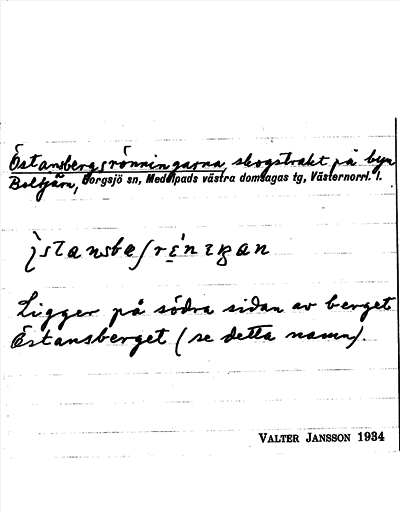 Östansbergsrönningarna, skogstrakt på byn
Boltjärn, Borgsjö sn, Medelpads västra domsagas tg, Västernorrl. l.
Ligger på södra sidan av berget
Östansberget (se detta namn).
VALTER JANSSON 1934